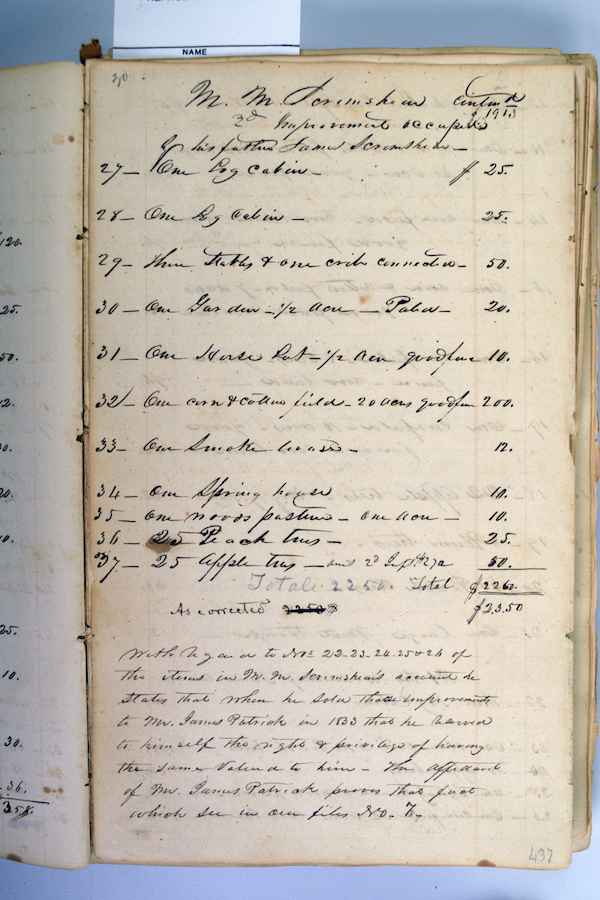 NAME
30
M. M. Scrimshear Contind
$1913
3d Improvement occupied
by his father James Scrimshear —
27 — One Log Cabin — $ 25.
28 — One Log Cabin — 25.
29 — Three Stables & one crib connected — 50.
30 — One Garden — 1/2 acre — Paled — 20.
31 — One Horse Lot — 1/2 acre good fence 10.
32 — One corn & cotton field — 20 acres good fence 200.
33 — One Smoke house — 12.
34 — One Spring house 10.
35 — One woods pasture — one acre — 10.
36 — 25 Peach trees — 25
37 — 25 Apple trees — 50.
Total 2250. Total $2260.
As corrected 2250 $2350
With regard to Nos 22-23-24-25 & 26 of
the items in M. M. Scrimshear's account he
States that when he sold these improvements
to Mr. James Patrick in 1833 that he reserved
to himself the right & privilege of having
the same valued to him — The affidavit
of Mr. James Patrick proves that fact
which see in our files No. 7.
437
120.
25.
50.
12.
30.
20.
10.
25.
10.
30.
36.
358.